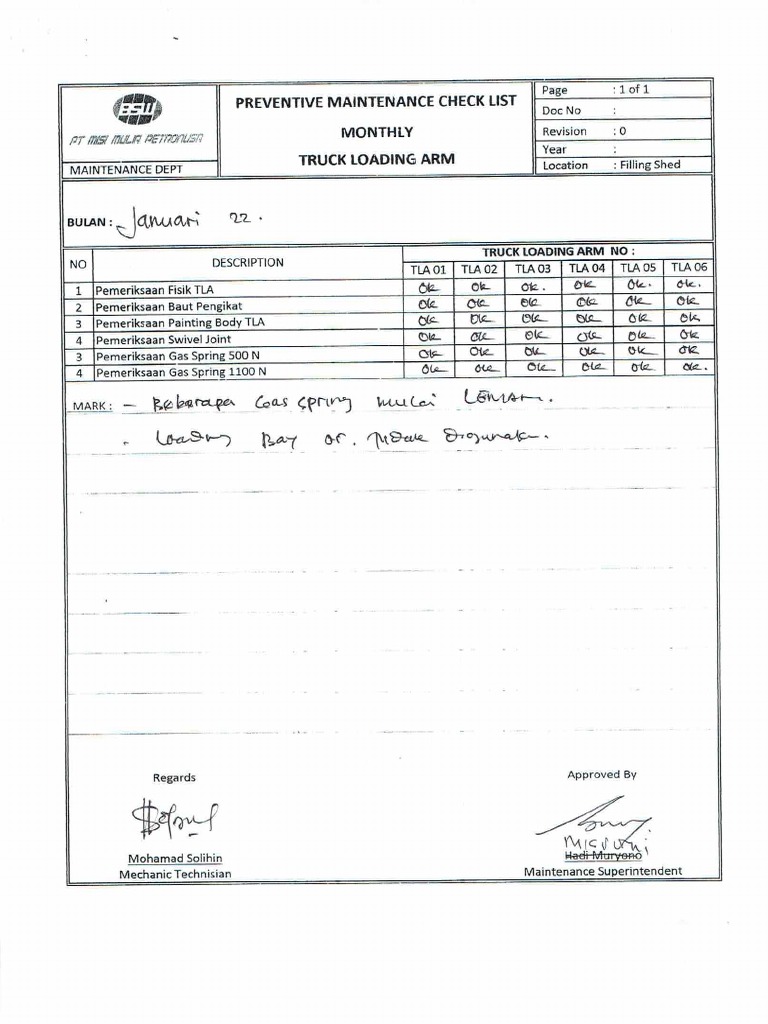 BSW
PT MISI MULIA PETRONUSA
MAINTENANCE DEPT
PREVENTIVE MAINTENANCE CHECK LIST
MONTHLY
TRUCK LOADING ARM
Page : 1 of 1
Doc No :
Revision : 0
Year :
Location : Filling Shed
BULAN : Januari 22.
NO DESCRIPTION TRUCK LOADING ARM NO :
TLA 01 TLA 02 TLA 03 TLA 04 TLA 05 TLA 06
1 Pemeriksaan Fisik TLA Ok Ok Ok. Ok Ok. Ok.
2 Pemeriksaan Baut Pengikat Ok Ok Ok Ok Ok Ok
3 Pemeriksaan Painting Body TLA Ok Ok Ok Ok Ok Ok
4 Pemeriksaan Swivel Joint Ok Ok Ok Ok Ok Ok
3 Pemeriksaan Gas Spring 500 N Ok Ok Ok Ok Ok Ok
4 Pemeriksaan Gas Spring 1100 N Ok Ok Ok Ok Ok Ok.
MARK : - Beberapa Gas spring mulai LEMAH.
- Loading Bay
Regards
Mohamad Solihin
Mechanic Technisian
Approved By
Hadi Muryono
Maintenance Superintendent